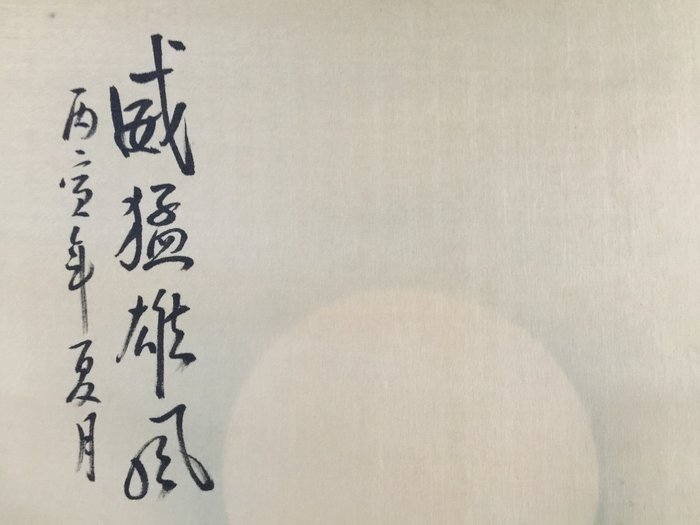 威猛雄风
丙寅年夏月